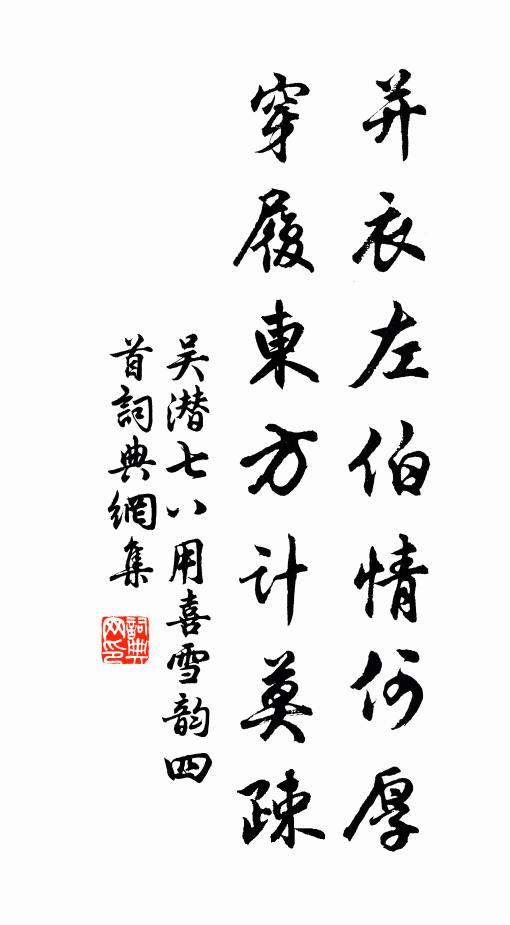 并衣左伯情何厚
穿履東方计莫疎
吴潜七八用喜雪韵四
首詞典網集
詞典网印